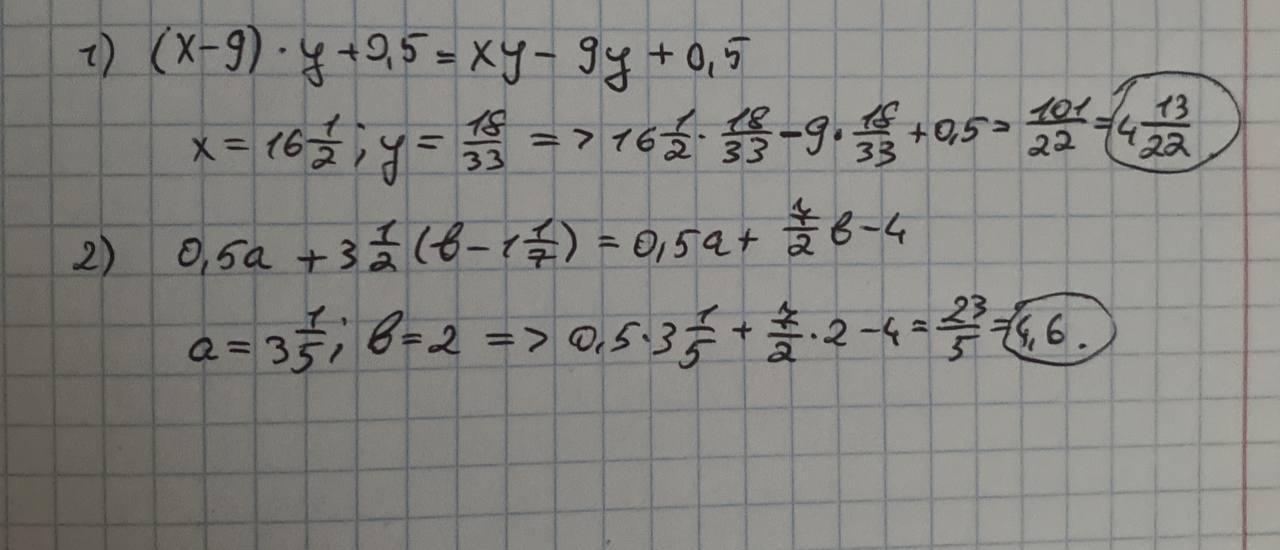 1) (x-9)·y+0,5=xy-9y+0,5
x=16 1/2; y=18/33 => 16 1/2·18/33-9·18/33+0,5=101/22=4 13/22
2) 0,5a+3 1/2(в-1 1/7)=0,5a+7/2в-4
a=3 1/5; в=2 => 0,5·3 1/5+7/2·2-4=23/5=4,6.